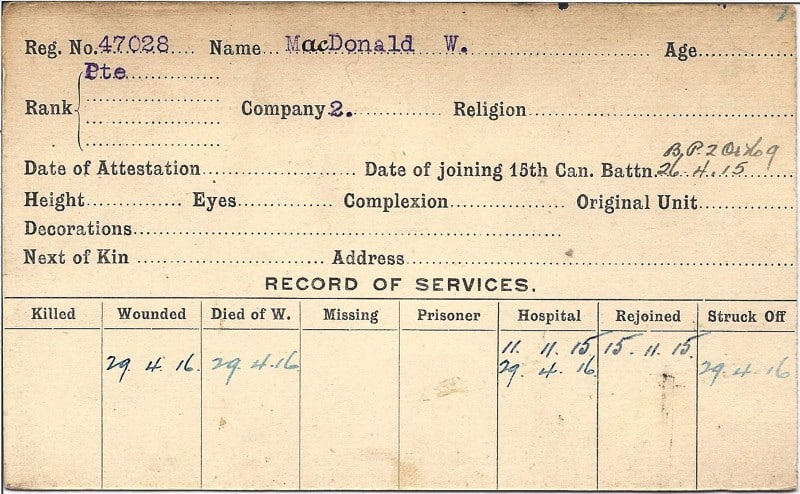 Reg. No. 47028 Name MacDonald W. Age
Pte
Rank Company 2. Religion
B.P. 2 Or
Date of Attestation Date of joining 15th Can. Battn. 26.4.15
Height Eyes Complexion Original Unit
Decorations
Next of Kin Address
RECORD OF SERVICES.
Killed Wounded Died of W. Missing Prisoner Hospital Rejoined Struck Off
11. 11. 15 15. 11. 15.
29. 4. 16. 29. 4. 16 29. 4. 16. 29. 4. 16